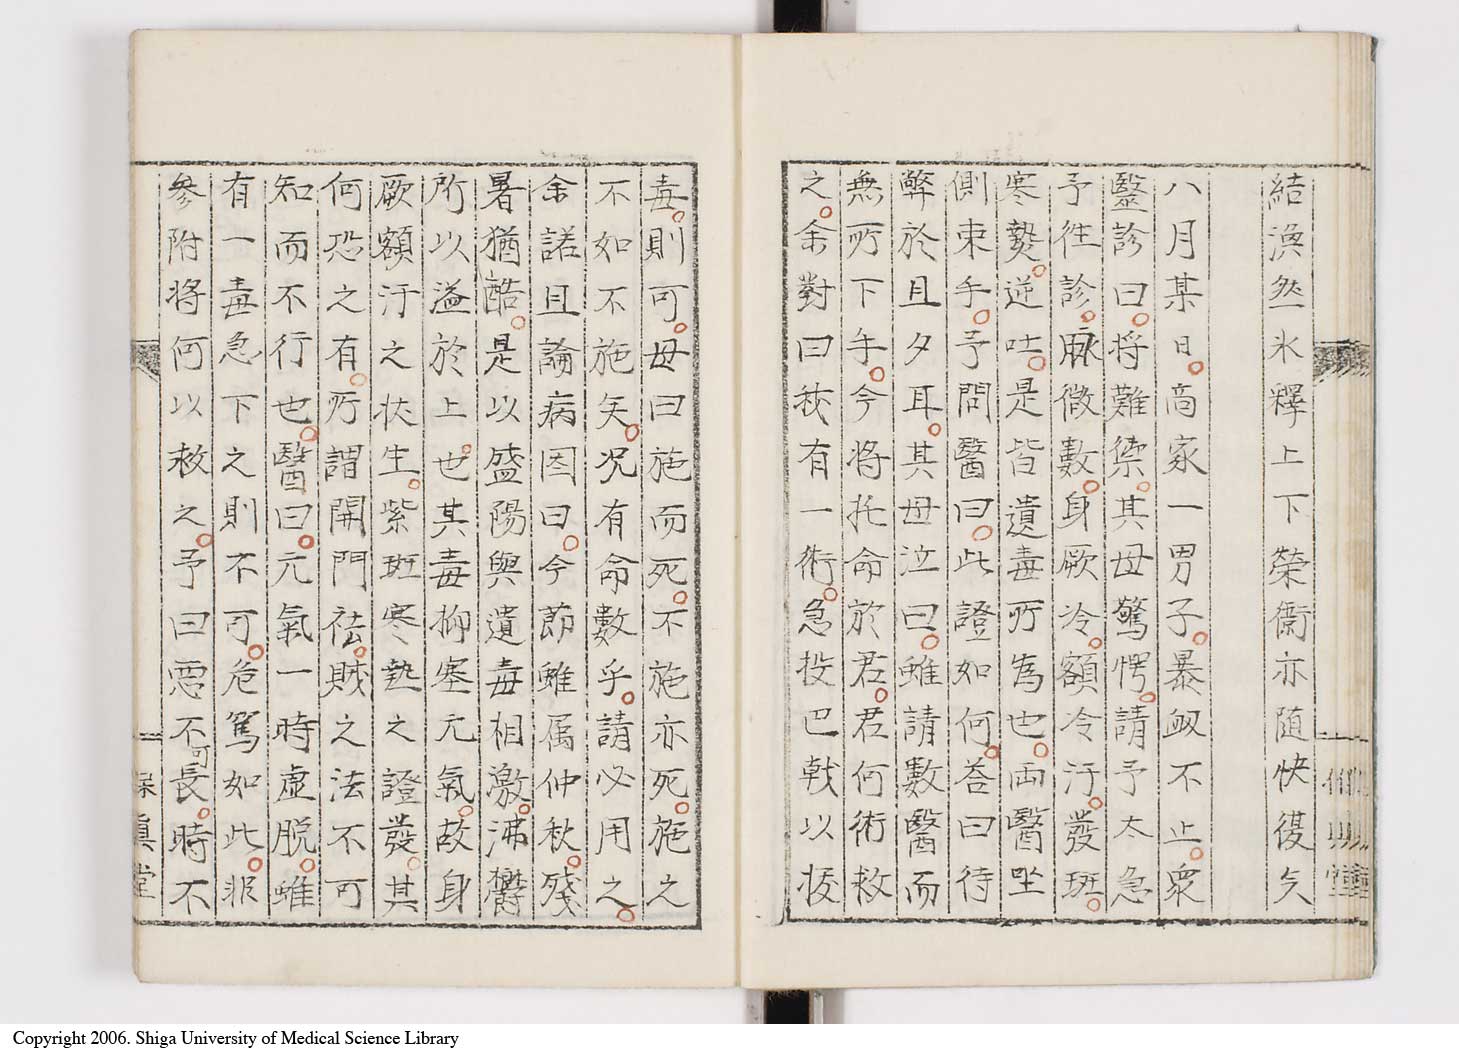 結渙然氷釋上下榮衞亦随快復矣
八月某日。商家一男子。暴瀉不止。衆
醫診曰。将難療。其母驚愕。請予太急
予往診。脉微數。身厥冷。額冷汙。發斑。
寒熱。逆吐。是皆遺毒所爲也。両醫坐
側束手。予問醫曰。此證如何。荅曰待
斃於旦夕耳。其母泣曰。雖請數醫而
無所下手。今将托命於君。君何術救
之。余對曰我有一術。急投巴戟以接
毒。則可。母曰施而死。不施亦死。施之
不如不施矣。况有命數乎。請必用之。
余諾且論病因曰。今節雖属仲秋。殘
暑猶酷。是以盛陽與遺毒相激。沸欝
所以溢於上。也其毒抑塞元氣。故身
厥額汙之狀生。紫斑寒熱之證發。其
何恐之有。所謂開門祛。賊之法不可
知而不行也。醫曰。元氣一時虚脱。雖
有一毒急下之則不可。危篤如此。非
參附将何以救之。予曰悪不可長。時不
眞堂
Copyright 2006. Shiga University of Medical Science Library